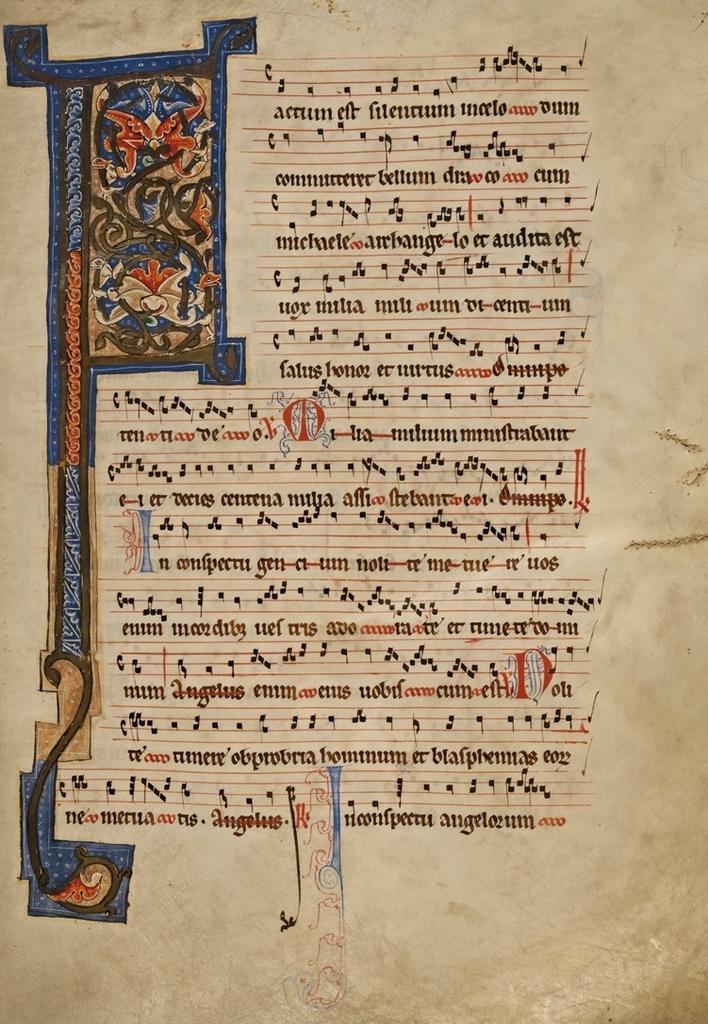 Factum est silentium in celo dum
committeret bellum draco cum
michaele archangelo et audita est
uox milia milium dicentium
salus honor et uirtus Omnipo
tenti deo. Milia milium ministrabant
ei et decies centena milia assistebant ei. Omnipo. R
In conspectu gencium noli te metuere uos
enim in cordibz uestris adorate et timete domi
num Angelus enim eius uobiscum est Noli
te timere obprobria hominum et blasphemias eorz
ne metuatis. Angelus. R In conspectu angelorum